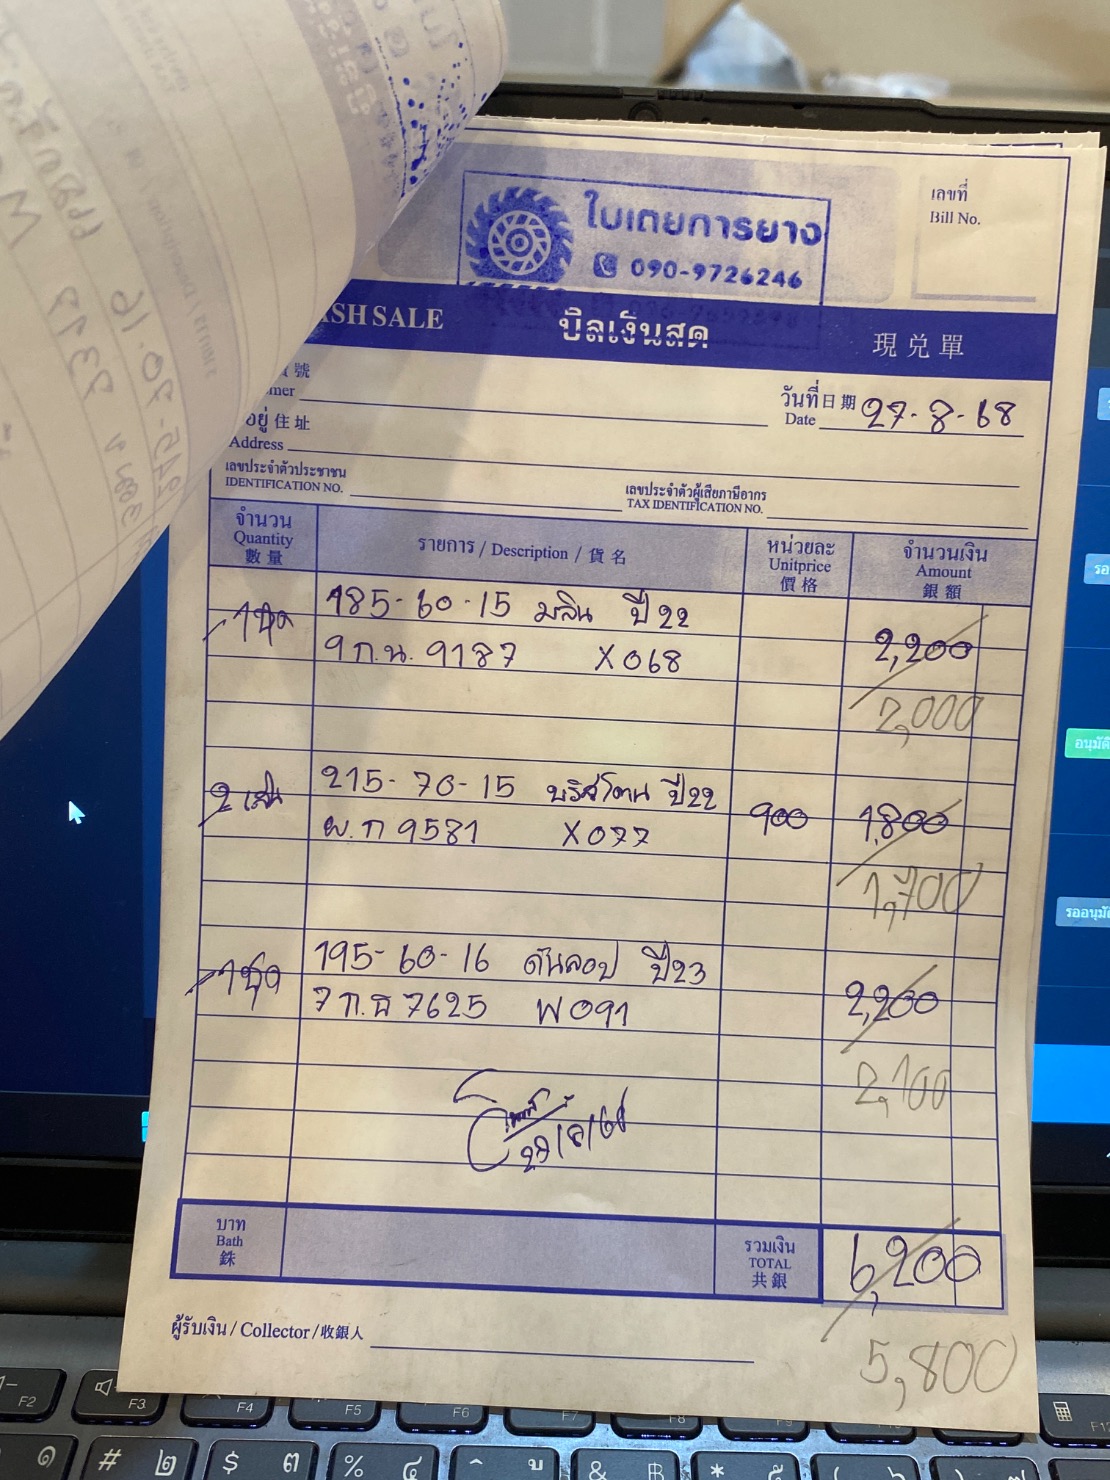 ใบเตยการยาง
090-9726246
เลขที่
Bill No.
ASH SALE บิลเงินสด 現兑單
號
mer
วันที่ 日期 Date 27-8-68
อยู่ 住址
Address
เลขประจำตัวประชาชน
IDENTIFICATION NO.
เลขประจำตัวผู้เสียภาษีอากร
TAX IDENTIFICATION NO.
จำนวน Quantity 數量 รายการ / Description / 貨名 หน่วยละ Unitprice 價格 จำนวนเงิน Amount 銀額
1ชุด 185-60-15 มลิน ปี22 2,200
9ก.น. 9187 X068
2,000
2 เส้น 215-70-15 บริสโตน ปี22 900 1,800
ผ.ก 9581 X077
1,700
1ชุด 195-60-16 ดันลอป ปี23 2,200
7ก.ธ 7625 W091
2,100
บาท Bath 銖 รวมเงิน TOTAL 共銀 6,200
ผู้รับเงิน / Collector / 收銀人
5,800
F2 F3 F4 F5 F6 F7 F8 F9
# ๒ $ ๓ % ๔ & ฿ * ๕
อนุมัติ
รออนุมัติ